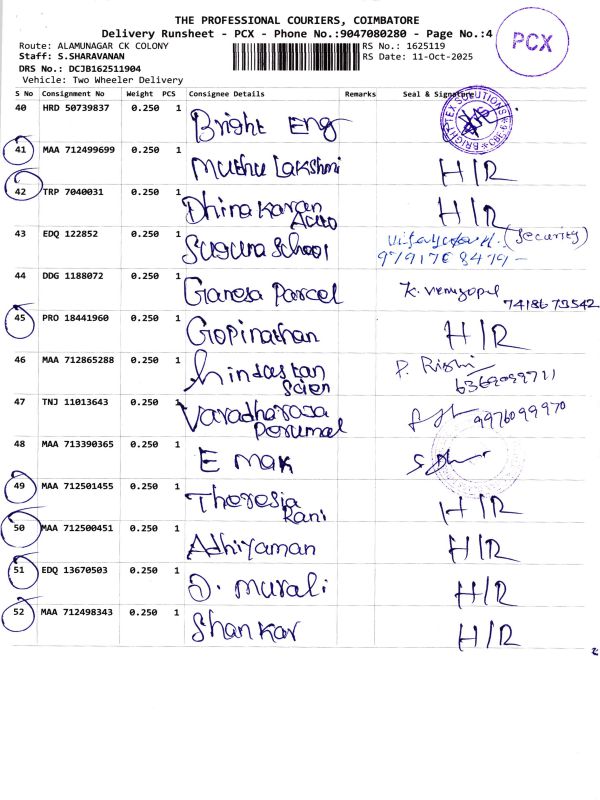 THE PROFESSIONAL COURIERS, COIMBATORE
Delivery Runsheet - PCX - Phone No.:9047080280 - Page No.:4
PCX
Route: ALAMUNAGAR CK COLONY RS No.: 1625119
Staff: S.SHARAVANAN RS Date: 11-Oct-2025
DRS No.: DCJB162511904
Vehicle: Two Wheeler Delivery
S No Consignment No Weight PCS Consignee Details Remarks Seal & Signature
40 HRD 50739837 0.250 1 Bright Eng
41 MAA 712499699 0.250 1 Muthu Lakshmi H/R
42 TRP 7040031 0.250 1 Dhina Karan H/R
43 EDQ 122852 0.250 1 Suguna School (Security)
9791768479
44 DDG 1188072 0.250 1 Ganesa Parcel K. Venugopal
7418673542
45 PRO 18441960 0.250 1 Gopinathan H/R
46 MAA 712865288 0.250 1 hindastan P. Rishi
Scien 6369099711
47 TNJ 11013643 0.250 1 Varadharasa 9976099970
Perumal
48 MAA 713390365 0.250 1 E mak
49 MAA 712501455 0.250 1 Theresia H/R
Rani
50 MAA 712500451 0.250 1 Adhiyaman H/R
51 EDQ 13670503 0.250 1 D. murali H/R
52 MAA 712498343 0.250 1 Shankar H/R